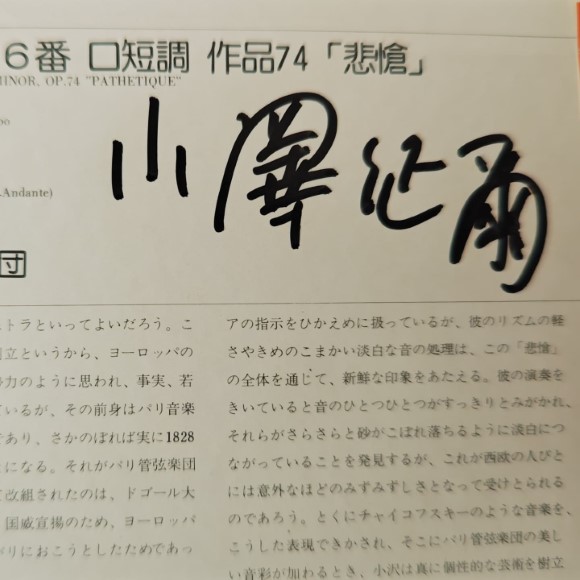 6番 ロ短調 作品74「悲愴」
MINOR, OP.74 "PATHETIQUE"
小澤征爾
Andante)
団
ストラといってよいだろう。こ
国立というから、ヨーロッパの
勢力のように思われ、事実、若
ているが、その前身はパリ音楽
であり、さかのぼれば実に1828
とになる。それがパリ管弦楽団
て改組されたのは、ドゴール大
国威宣揚のため、ヨーロッパ
がりにおこうとしたためであっ
アの指示をひかえめに扱っているが、彼のリズムの軽
さやきめのこまかい淡白な音の処理は、この「悲愴」
の全体を通じて、新鮮な印象をあたえる。彼の演奏を
きいていると音のひとつひとつがすっきりとみがかれ、
それらがさらさらと砂がこぼれ落ちるように淡白につ
ながっていることを発見するが、これが西欧の人びと
には意外なほどのみずみずしさとなって受けとられる
のであろう。とくにチャイコフスキーのような音楽を、
こうした表現できかされ、そこにパリ管弦楽団の美し
い音彩が加わるとき、小沢は真に個性的な芸術を樹立